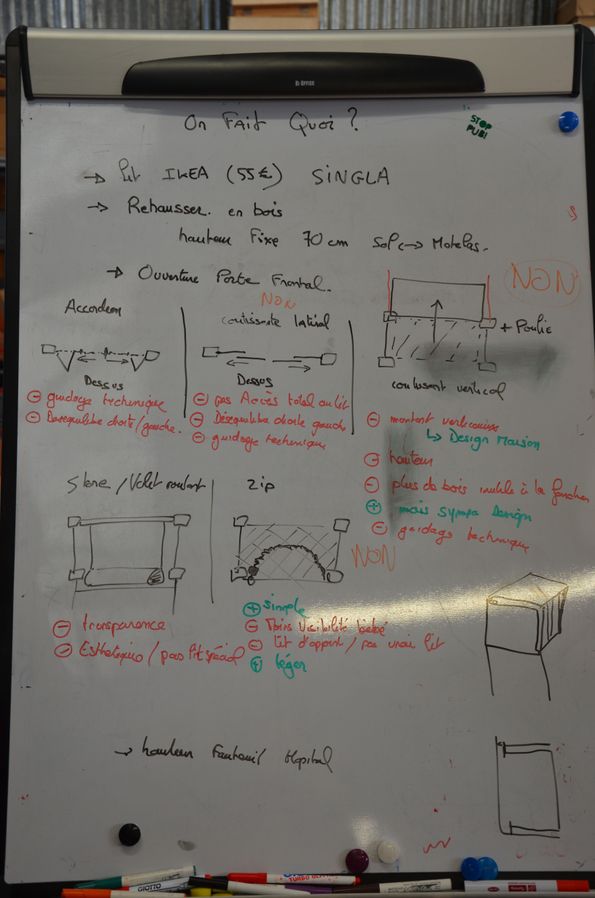 On Fait Quoi ?
STOP
PUB!
→ Lit IKEA (55€) SINGLA
→ Rehausser. en bois
hauteur Fixe 70 cm Sol ↔ Matelas.
→ Ouverture Porte Frontal.
Accordeon
Dessus
⊖ guidage technique
⊖ Desequilibre droite/gauche.
NON
coulissante latéral
Dessus
⊖ pas Accès total au lit
⊖ Désequilibre droite gauche
⊖ guidage technique
NON
+ Poulie
coulissant vertical
⊖ montant vertical
↳ Design Maison
⊖ hauteur
⊖ plus de bois inutile à la fonction
⊕ mais sympa Design
⊖ guidage technique
Store / Volet roulant
⊖ transparence
⊖ Esthetique / pas lit spécial
Zip
NON
⊕ simple
⊖ Moins Visibilité bébé
⊖ Lit d'appoint / pas vrai lit
⊕ léger
→ hauteur Fauteuil Hopital
GIOTTO